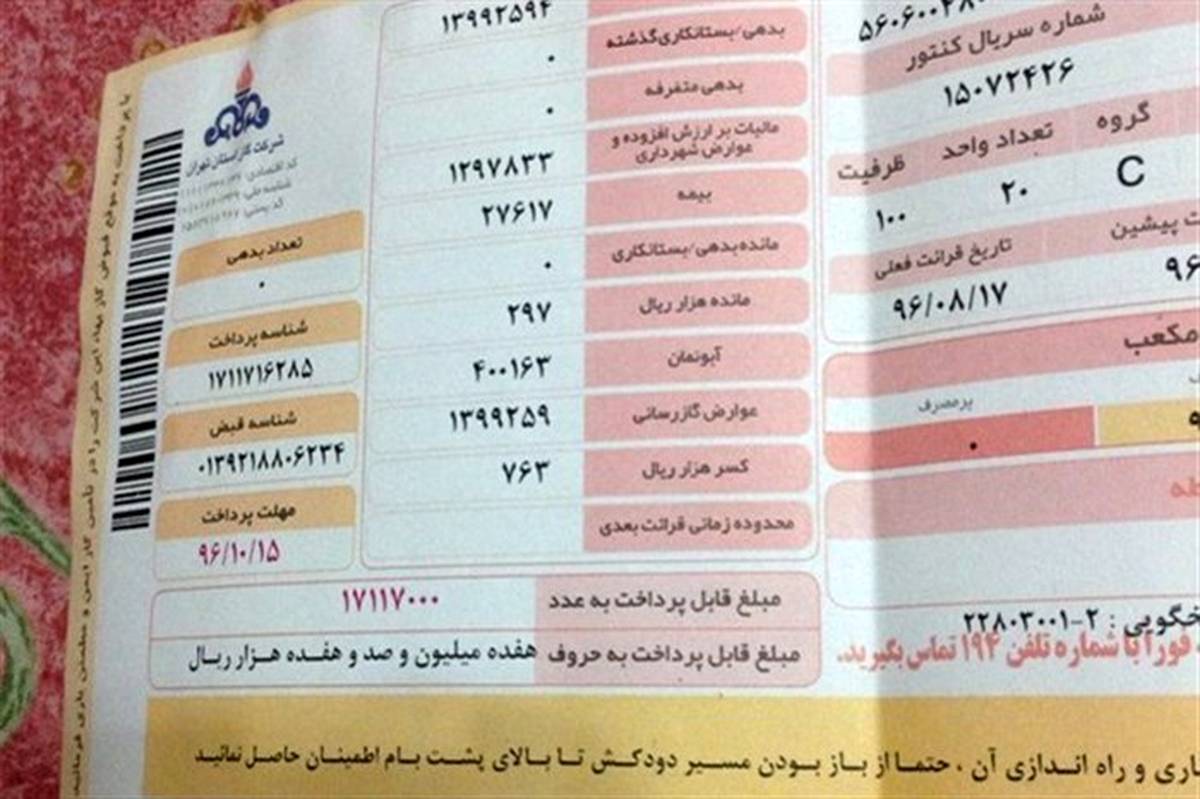 ۱۳۹۹۲۵۹۴
بدهی/بستانکاری گذشته
۰
بدهی متفرقه
۰
مالیات بر ارزش افزوده و
عوارض شهرداری
۱۲۹۷۸۳۳
بیمه
۲۷۶۱۷
مانده بدهی/بستانکاری
۰
مانده هزار ریال
۲۹۷
آبونمان
۴۰۰۱۶۳
عوارض گازرسانی
۱۳۹۹۲۵۹
کسر هزار ریال
۷۶۳
محدوده زمانی قرائت بعدی
شماره سریال کنتور
۱۵۰۷۲۴۲۶
گروه
تعداد واحد
ظرفیت
C
۲۰
۱۰۰
پیشین
تاریخ قرائت فعلی
۹۶
۹۶/۰۸/۱۷
مکعب
پرمصرف
۰
شرکت گاز استان تهران
تعداد بدهی
۰
شناسه پرداخت
۱۷۱۱۷۱۶۲۸۵
شناسه قبض
۰۱۳۹۲۱۸۸۰۶۲۳۴
مهلت پرداخت
۹۶/۱۰/۱۵
مبلغ قابل پرداخت به عدد
۱۷۱۱۷۰۰۰
مبلغ قابل پرداخت به حروف
هفده میلیون و صد و هفده هزار ریال
خگویی : ۲-۲۲۸۰۳۰۰۱
فوراً با شماره تلفن ۱۹۴ تماس بگیرید.
اری و راه اندازی آن ، حتما از باز بودن مسیر دودکش تا بالای پشت بام اطمینان حاصل نمائید